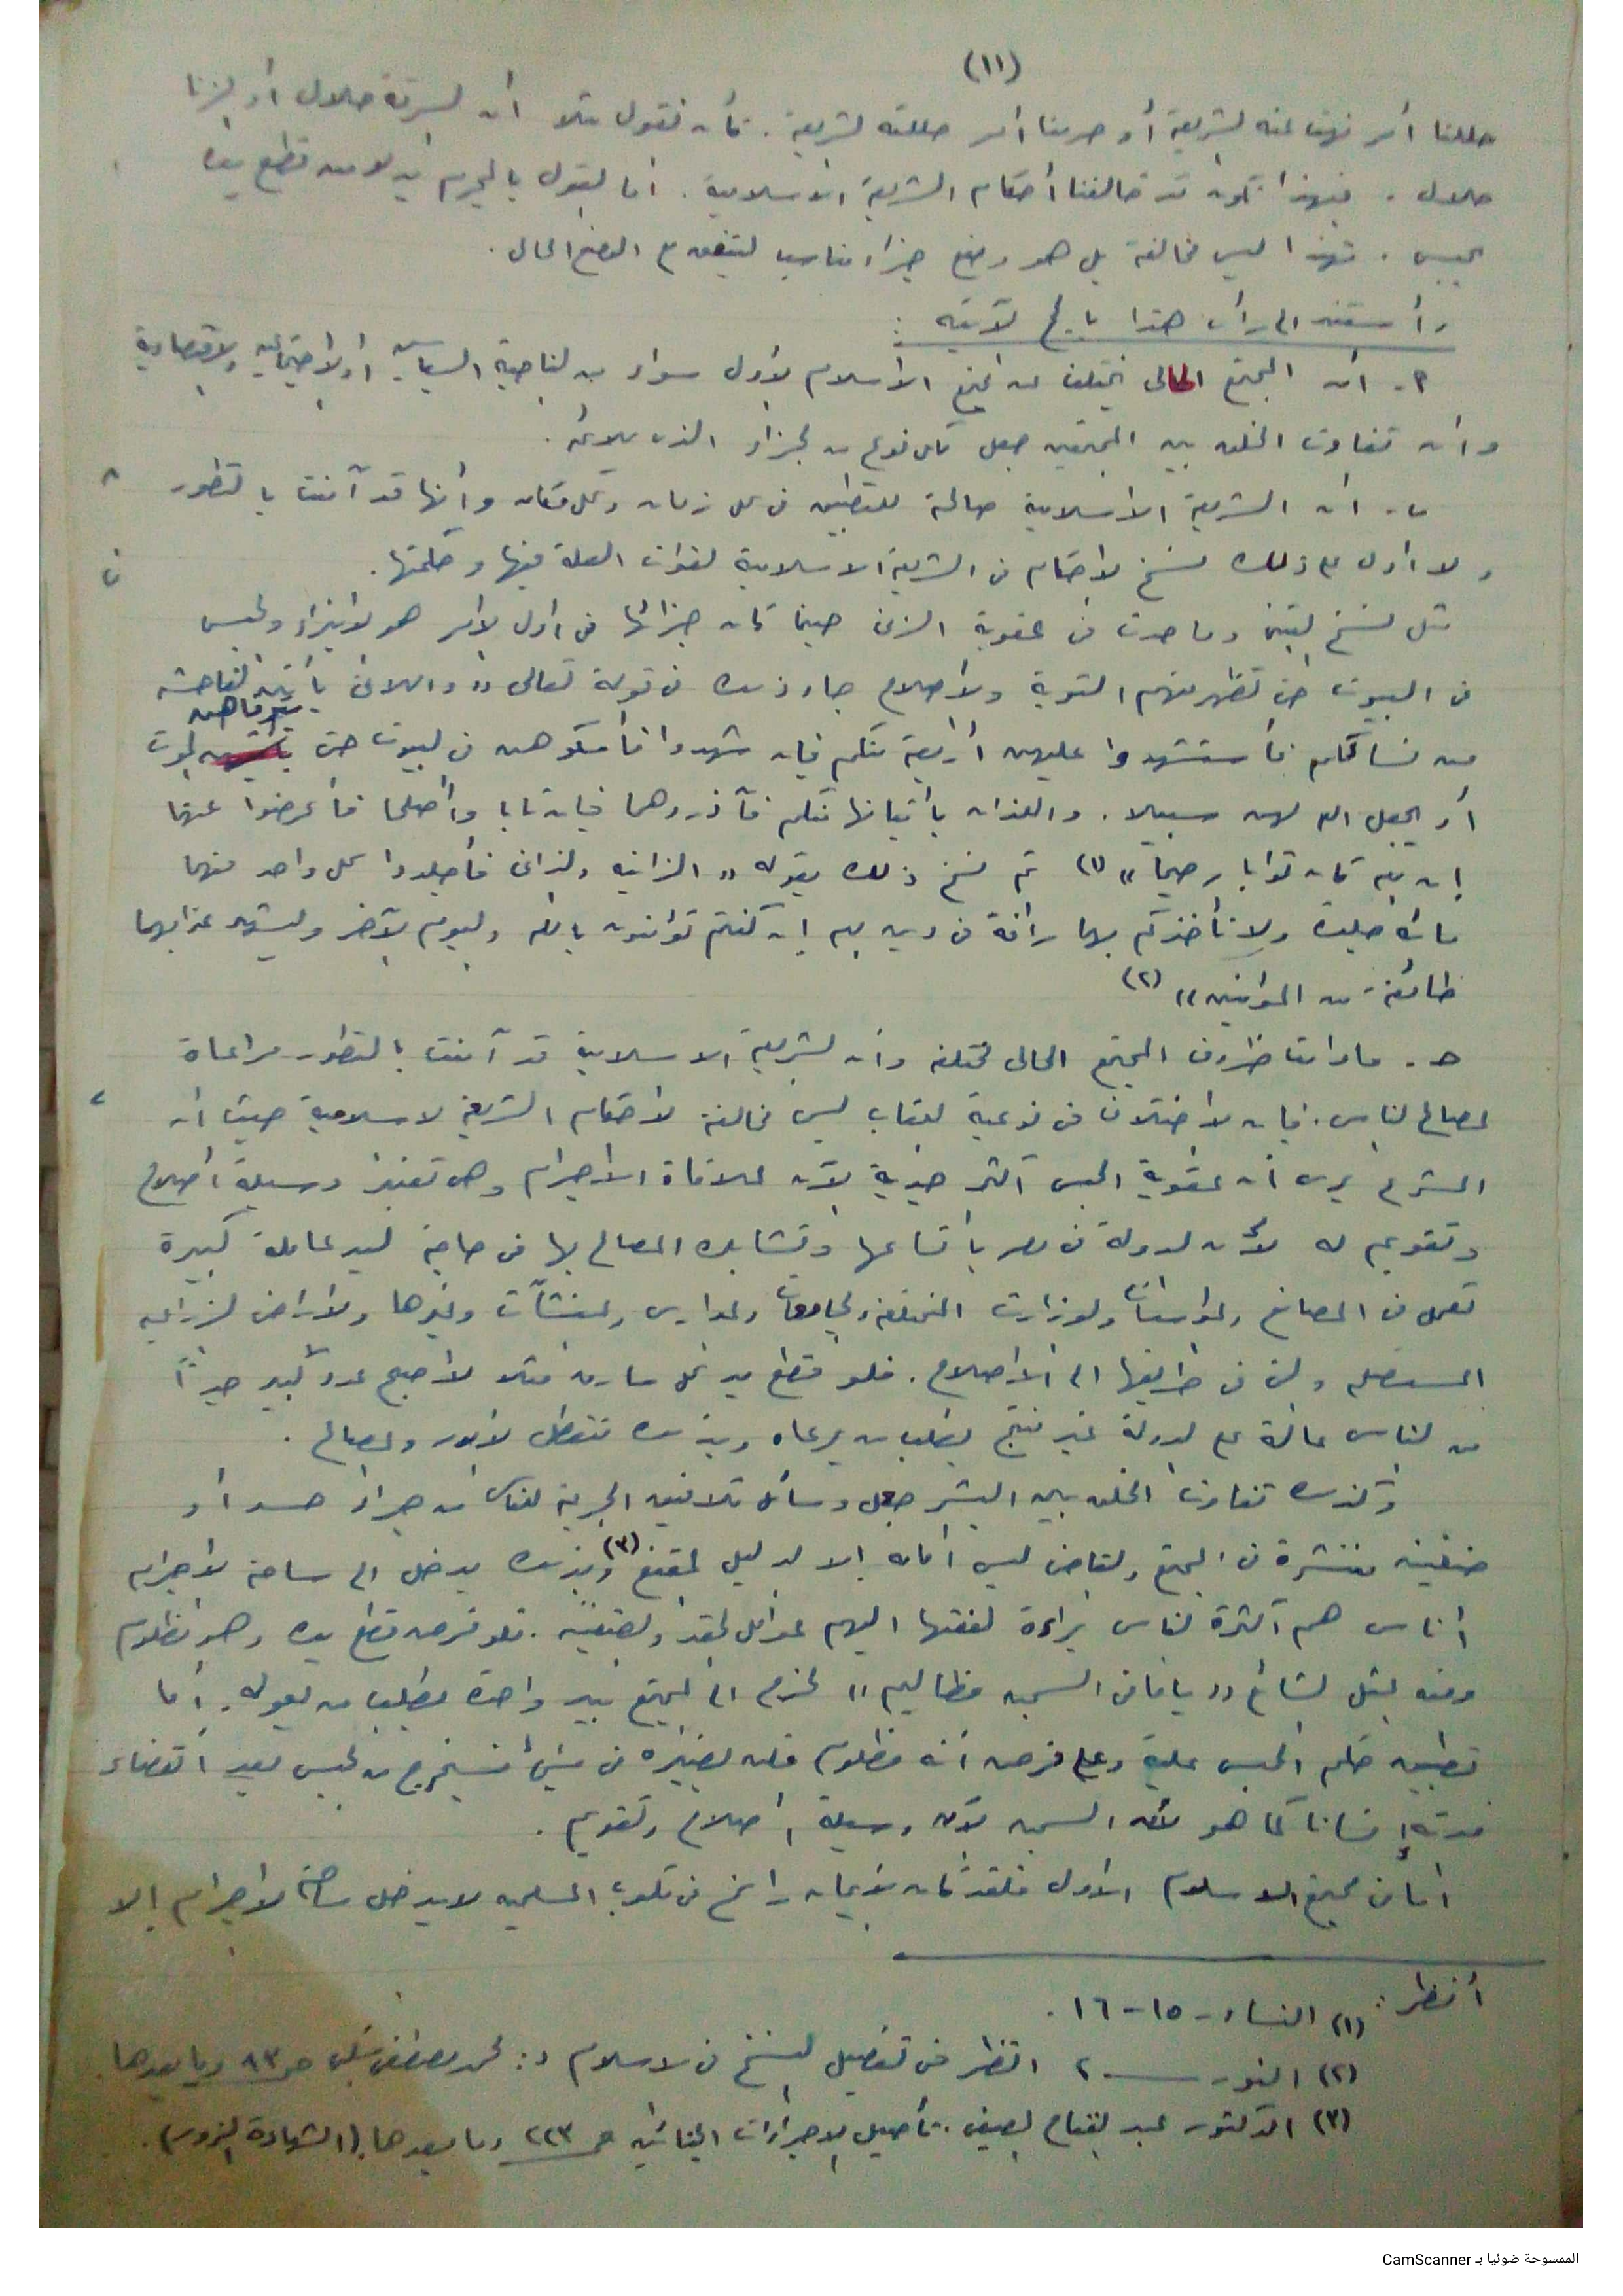 (١١)
حللنا أمر نهت عنه الشريعة أو حرمنا أمر حللته الشريعة. كأن نقول مثلا أن السرقة حلال أو الزنا
حلال. فبهذا نكون قد خالفنا أحكام الشريعة الاسلامية. أما القول بالمجرم بدلا من قطع يده
الحبس. فهذا ليس مخالفة بل هو وضع جزاء مناسب ليتفق مع الوضع الحالى.
وأستند الى رأى هذا بالحجج الآتيه :
٢- ان المجتمع الحالى يختلف عن مجتمع الاسلام الأول سواء من الناحية السياسيه أو الاجتماعيه والاقتصادية
وان تفاوت الخلق بين المجتمعين جعل لكل نوع من الجزاء الذى يلائمه.
ب- ان الشريعة الاسلامية صالحة للتطبيق فى كل زمان وكل مكان وأنها قد آمنت بالتطور
ولا أدل على ذلك نسخ الأحكام فى الشريعة الاسلامية لفوات العلة فيها وحكمتها.
مثل نسخ وما حدث فى عقوبة الزنى حينما كان جزائها فى أول الأمر هو الايذاء والحبس
فى البيوت حتى تظهر منهم التوبة والاصلاح جاء ذلك فى قوله تعالى «واللاتى يأتين الفاحشة
من نسائكم فأستشهدوا عليهن أربعة منكم فإن شهدوا فأمسكوهن فى البيوت حتى يتوفاهن الموت
أو يجعل الله لهن سبيلا. واللذان يأتيانها منكم فآذوهما فإن تابا وأصلحا فأعرضوا عنهما
إن الله كان توابا رحيما» (١) ثم نسخ ذلك بقوله «الزانيه والزانى فأجلدوا كل واحد منهما
مائة جلدة ولا تأخذكم بهما رأفة فى دين الله إن كنتم تؤمنون بالله واليوم الآخر وليشهد عذابهما
طائفة من المؤمنين» (٢)
حـ- مادامت ظروف المجتمع الحالى مختلفه وأن الشريعة الاسلامية قد آمنت بالتطور مراعاة
لمصالح الناس. فإن الاختلاف فى نوعية العقاب ليس مخالفة لأحكام الشريعة الاسلامية حيث أن
المشرع يرى أن عقوبة الحبس أكثر جدية الآن لملاقاة الاجرام وهى تعتبر وسيلة اصلاح
وتقويم له لأن الدولة فى مصر باتساعها وتشابك المصالح بها فى حاجة ليد عاملة كبيرة
تعمل فى المصانع والمؤسسات والوزارات المختلفه والجامعات والمدارس والمنشآت وغيرها والأراضى الزراعيه
المستصلحه والتى فى طريقها الى الاصلاح. فلو قطع يد كل سارق مثلا لأصبح عدد كبير جداً
من الناس عالة على الدولة غير منتج يطلب من يرعاه وبذلك تتعطل الأمور والمصالح.
وكذلك تفاوت الخلق بين البشر جعل وسائل تلافيق الجريمة للناس من جراء حسد أو
ضغينه منتشرة فى المجتمع والقاضى ليس أمامه إلا الدليل المقنع (٣) وبذلك يدخل الى ساحة الاجرام
أناس هم أكثرة الناس براءة لفقتها اليهم عوامل الحقد والضغينة. فلو فرض قطع يده وهو مظلوم
ومنه المثل الشائع «ياما فى السجن مظاليم» لخرج الى المجتمع بيد واحدة يطلب من يعوله. أما
تطبيق حكم الحبس عليه وعلى فرض أنه مظلوم فلن يضيره فى شئ فسيخرج من الحبس بعد انقضاء
مدته إنسانا كما هو لأن السجن الآن وسيلة اصلاح وتقويم.
أما فى مجتمع الاسلام الأول فلقد كان الايمان راسخ فى قلوب المسلمين لا يدخل ساحة الاجرام إلا
أنظر:
(١) النساء - ١٥-١٦.
(٢) النور ـــ ٢ انظر فى تفصيل النسخ فى الاسلام د: محمد مصطفى شلبى صـ ٨٣ وما بعدها.
(٣) الدكتور عبد الفتاح الصيفى. تأصيل الاجراءات الجنائيه صـ ٢٢٣ وما بعدها. (الشهادة الزور).
الممسوحة ضوئيا بـ CamScanner